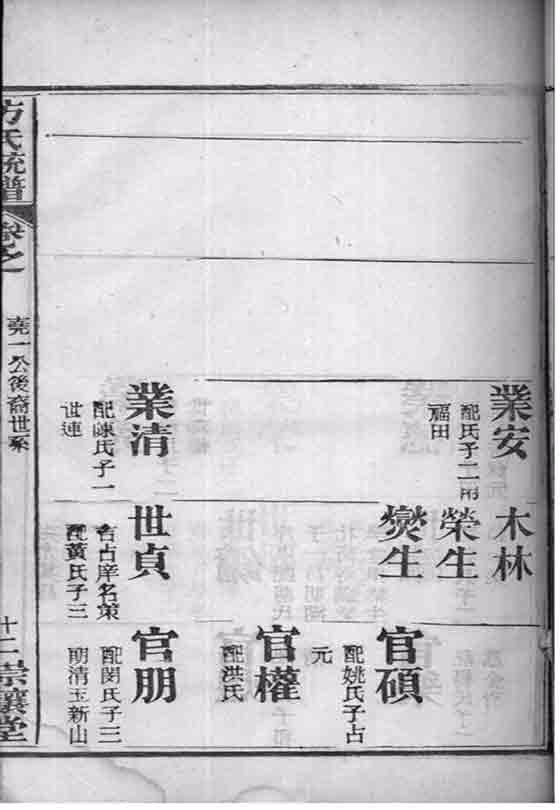 業安
配氏子二
福田
木林
榮生
爕生
官碩
配姚氏子占
元
官權
配洪氏
業清
配陳氏子一
世連
世貞
名占庠名策
配黃氏子三
官朋
配閔氏子三
明清玉新山
方氏統譜
堯一公後裔世系